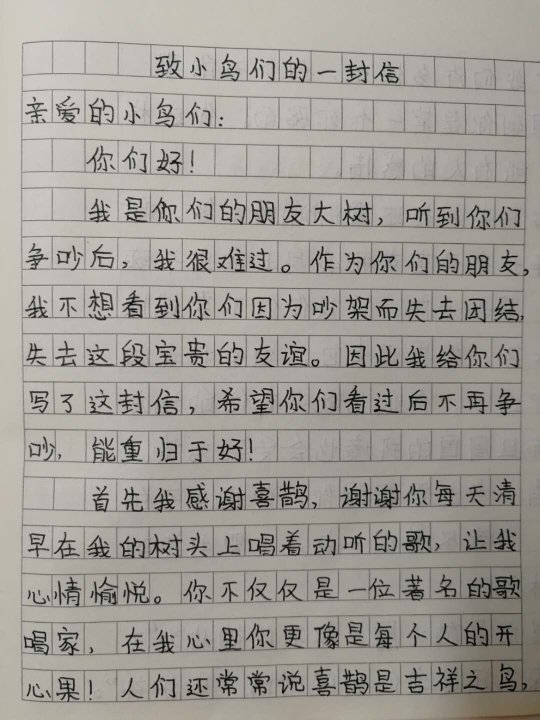 致小鸟们的一封信
亲爱的小鸟们：
你们好！
我是你们的朋友大树，听到你们
争吵后，我很难过。作为你们的朋友，
我不想看到你们因为吵架而失去团结，
失去这段宝贵的友谊。因此我给你们
写了这封信，希望你们看过后不再争
吵，能重归于好！
首先我感谢喜鹊，谢谢你每天清
早在我的树头上唱着动听的歌，让我
心情愉悦。你不仅仅是一位著名的歌
唱家，在我心里你更像是每个人的开
心果！人们还常常说喜鹊是吉祥之鸟，